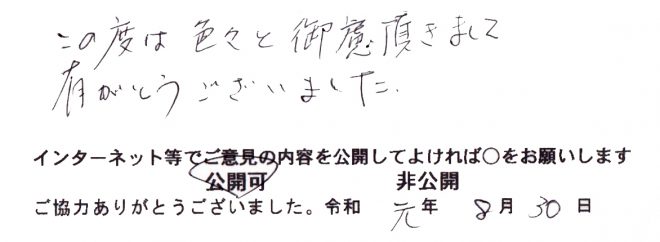 この度は色々と御慮頂きまして
有がとうございました.
インターネット等でご意見の内容を公開してよければ○をお願いします
公開可 非公開
ご協力ありがとうございました。令和 元年 8月 30日